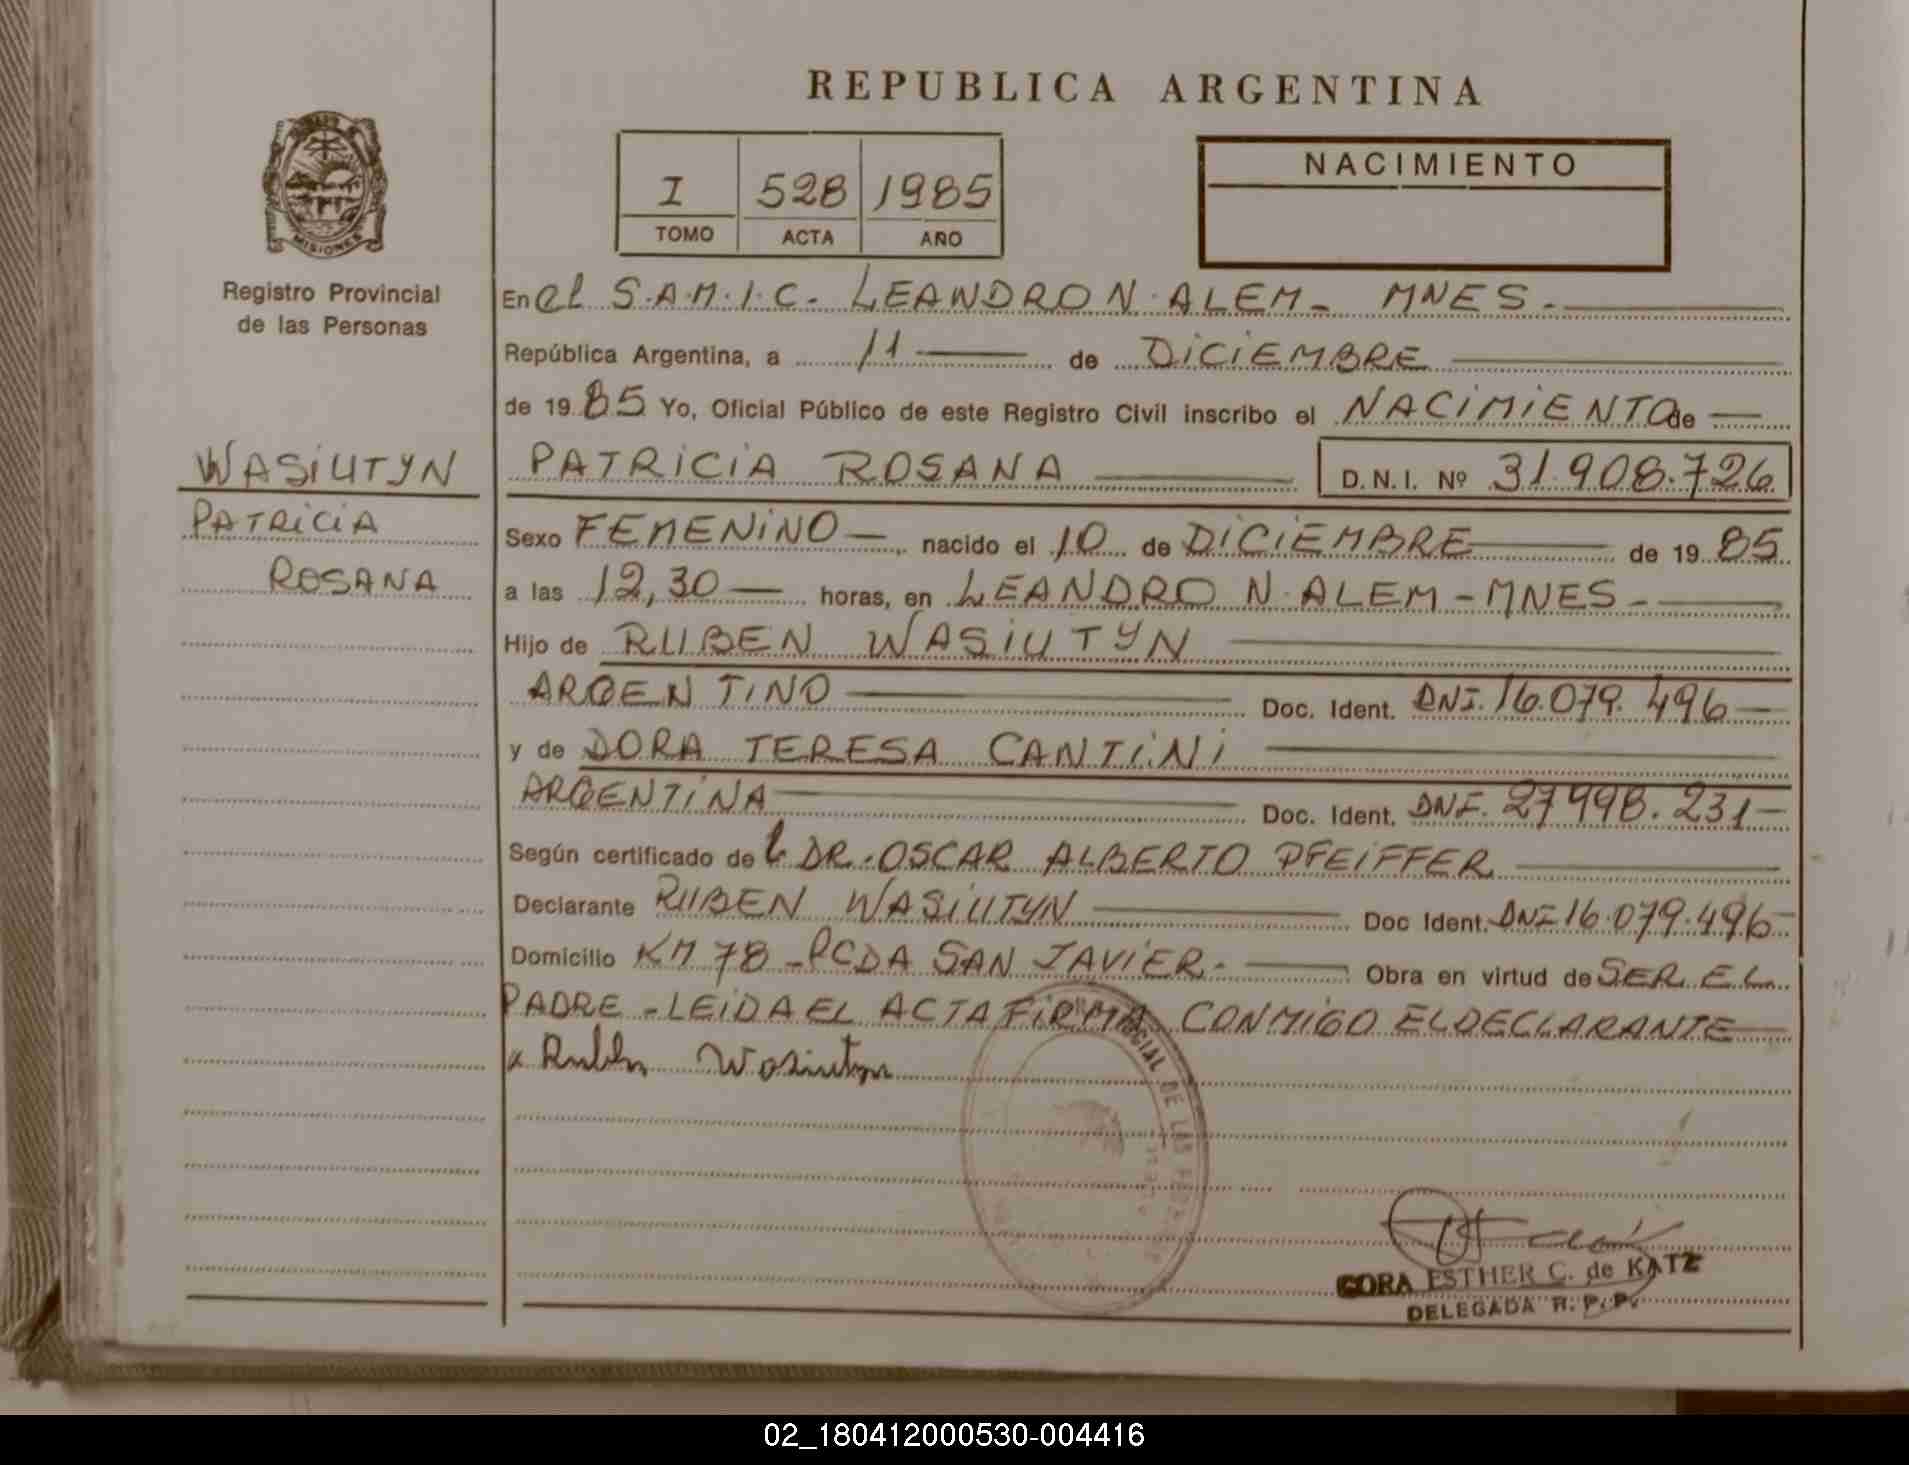 REPUBLICA ARGENTINA
MISIONES
Registro Provincial
de las Personas
I 528 1985
TOMO ACTA AÑO
NACIMIENTO
WASIUTYN
PATRICIA
ROSANA
En el S.A.M.I.C. LEANDRO N. ALEM - MNES.
República Argentina, a 11 de DICIEMBRE
de 1985 Yo, Oficial Público de este Registro Civil inscribo el NACIMIENTO de
PATRICIA ROSANA D.N.I. Nº 31.908.726
Sexo FEMENINO nacido el 10 de DICIEMBRE de 1985
a las 12,30 horas, en LEANDRO N. ALEM - MNES -
Hijo de RUBEN WASIUTYN
ARGENTINO Doc. Ident. DNI. 16.079.496
y de DORA TERESA CANTINI
ARGENTINA Doc. Ident. DNI. 27.998.231
Según certificado del DR. OSCAR ALBERTO PFEIFFER
Declarante RUBEN WASIUTYN Doc Ident. DNI 16.079.496
Domicilio KM 78 - PCDA SAN JAVIER. Obra en virtud de SER EL
PADRE - LEIDA EL ACTA FIRMA CONMIGO EL DECLARANTE
x Rubén Wasiutyn
CIAL DE LAS PER
CORA ESTHER C. de KATZ
DELEGADA R. P. P.
02_180412000530-004416